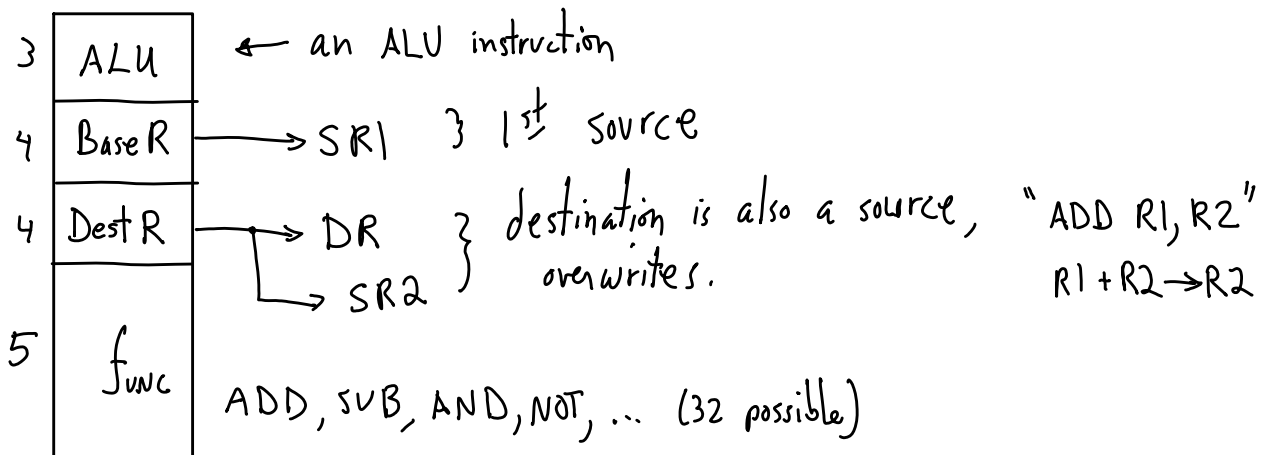 3 ALU ← an ALU instruction
4 BaseR → SR1 } 1st source
4 DestR → DR } destination is also a source, "ADD R1, R2"
SR2 overwrites. R1 + R2 → R2
5 func
ADD, SUB, AND, NOT, ... (32 possible)